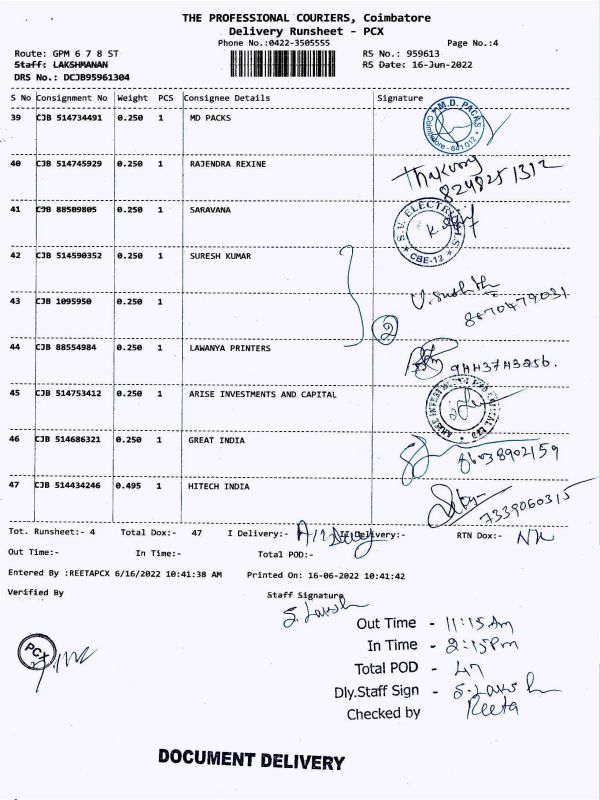 THE PROFESSIONAL COURIERS, Coimbatore
Delivery Runsheet - PCX
Phone No.:0422-3505555 Page No.:4
Route: GPM 6 7 8 ST RS No.: 959613
Staff: LAKSHMANAN RS Date: 16-Jun-2022
DRS No.: DCJB95961304
S No Consignment No Weight PCS Consignee Details Signature
39 CJB 514734491 0.250 1 MD PACKS
M.D. PACKS
Coimbatore - 641 012
40 CJB 514745929 0.250 1 RAJENDRA REXINE
8248251312
41 CJB 88509805 0.250 1 SARAVANA
S.V. ELECTRICALS
CBE-12
42 CJB 514590352 0.250 1 SURESH KUMAR
43 CJB 1095950 0.250 1
8870479031
2
44 CJB 88554984 0.250 1 LAWANYA PRINTERS
9443743256.
45 CJB 514753412 0.250 1 ARISE INVESTMENTS AND CAPITAL
46 CJB 514686321 0.250 1 GREAT INDIA
86038902159
47 CJB 514434246 0.495 1 HITECH INDIA
7339060315
Tot. Runsheet:- 4 Total Dox:- 47 I Delivery:- II Delivery:- RTN Dox:- Nil
Out Time:- In Time:- Total POD:-
Entered By :REETAPCX 6/16/2022 10:41:38 AM Printed On: 16-06-2022 10:41:42
Verified By Staff Signature
S. Laksh
Out Time - 11:15 Am
In Time - 2:15 Pm
Total POD - 47
Dly.Staff Sign - S. Laksh
Checked by Reeta
PCX
DOCUMENT DELIVERY